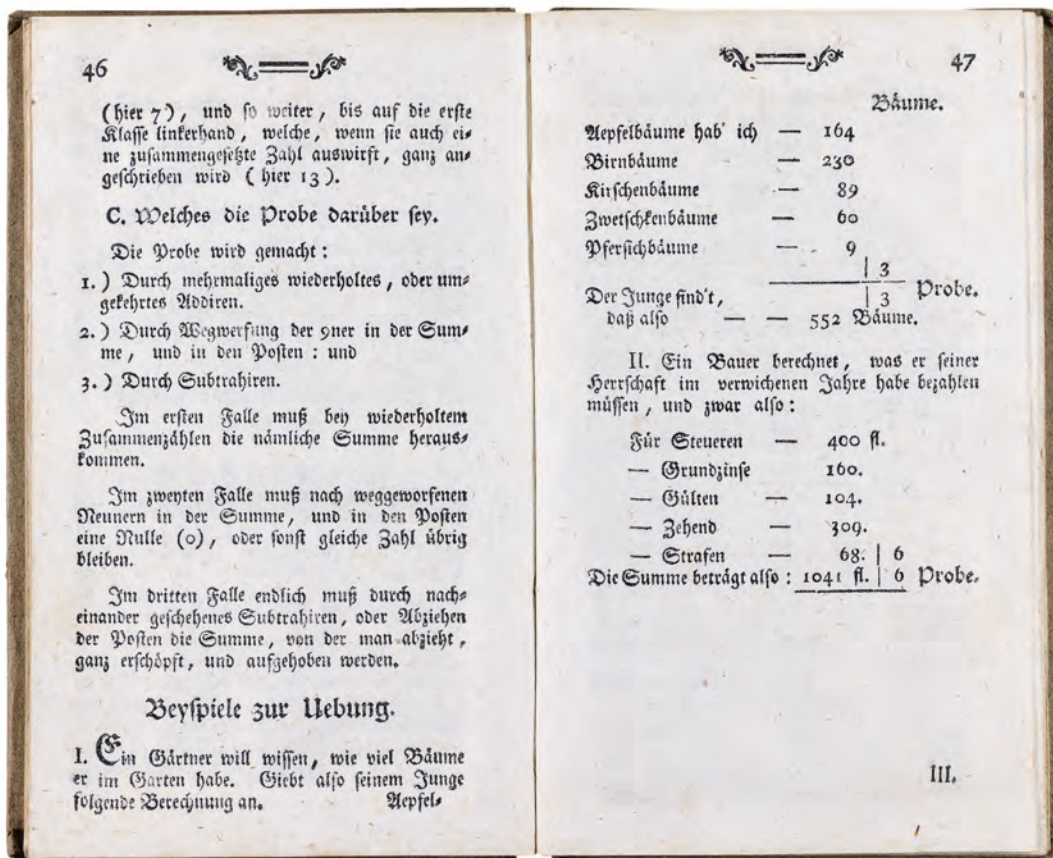 46
(hier 7), und so weiter, bis auf die erste
Klasse linkerhand, welche, wenn sie auch ei-
ne zusammengesetzte Zahl auswirft, ganz an-
geschrieben wird (hier 13).
C. Welches die Probe darüber sey.
Die Probe wird gemacht:
1.) Durch mehrmaliges wiederholtes, oder um-
gekehrtes Addiren.
2.) Durch Wegwerfung der 9ner in der Sum-
me, und in den Posten: und
3.) Durch Subtrahiren.
Im ersten Falle muß bey wiederholtem
Zusammenzählen die nämliche Summe heraus-
kommen.
Im zweyten Falle muß nach weggeworfenen
Neunern in der Summe, und in den Posten
eine Nulle (0), oder sonst gleiche Zahl übrig
bleiben.
Im dritten Falle endlich muß durch nach-
einander geschehenes Subtrahiren, oder Abziehen
der Posten die Summe, von der man abzieht,
ganz erschöpft, und aufgehoben werden.
Beyspiele zur Uebung.
I. Ein Gärtner will wissen, wie viel Bäume
er im Garten habe. Giebt also seinem Junge
folgende Berechnung an. Aepfel-
47
Bäume.
Aepfelbäume hab' ich — 164
Birnbäume — 230
Kirschenbäume — 89
Zwetschkenbäume — 60
Pfersichbäume — 9
| 3
Der Junge find't, | 3 Probe.
daß also — — 552 Bäume.
II. Ein Bauer berechnet, was er seiner
Herrschaft im verwichenen Jahre habe bezahlen
müssen, und zwar also:
Für Steueren — 400 fl.
— Grundzinse 160.
— Gülten — 104.
— Zehend — 309.
— Strafen — 68. | 6
Die Summe beträgt also: 1041 fl. | 6 Probe.
III.